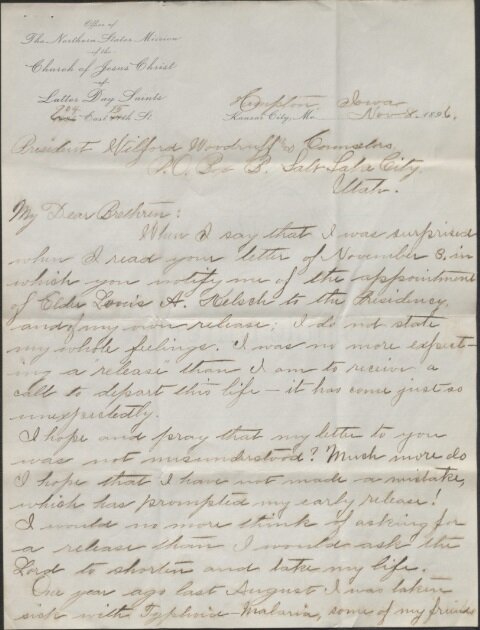 Office of
The Northern States Mission
of the
Church of Jesus Christ
of
Latter Day Saints
204 15
East th St.
Hampton, Iowa
Kansas City, Mo. Nov 8. 1896.
President Wilford Woodruff & Counselors,
P.O. Box B. Salt Lake City
Utah.
My Dear Brethren:
When I say that I was surprised
when I read your letter of November 3. in
which you notify me of the appointment
of Elder Louis A. Kelsch to the Presidency,
and of my own release; I do not state
my whole feelings. I was no more expect-
ing a release than I am to receive a
call to depart this life — it has come just so
unexpectedly.
I hope and pray that my letter to you
was not misunderstood? Much more do
I hope that I have not made a mistake,
which has prompted my early release!
I would no more think of asking for
a release than I would ask the
Lord to shorten and take my life.
One year ago last August I was taken
sick with Typhoid-Malaria, some of my friends